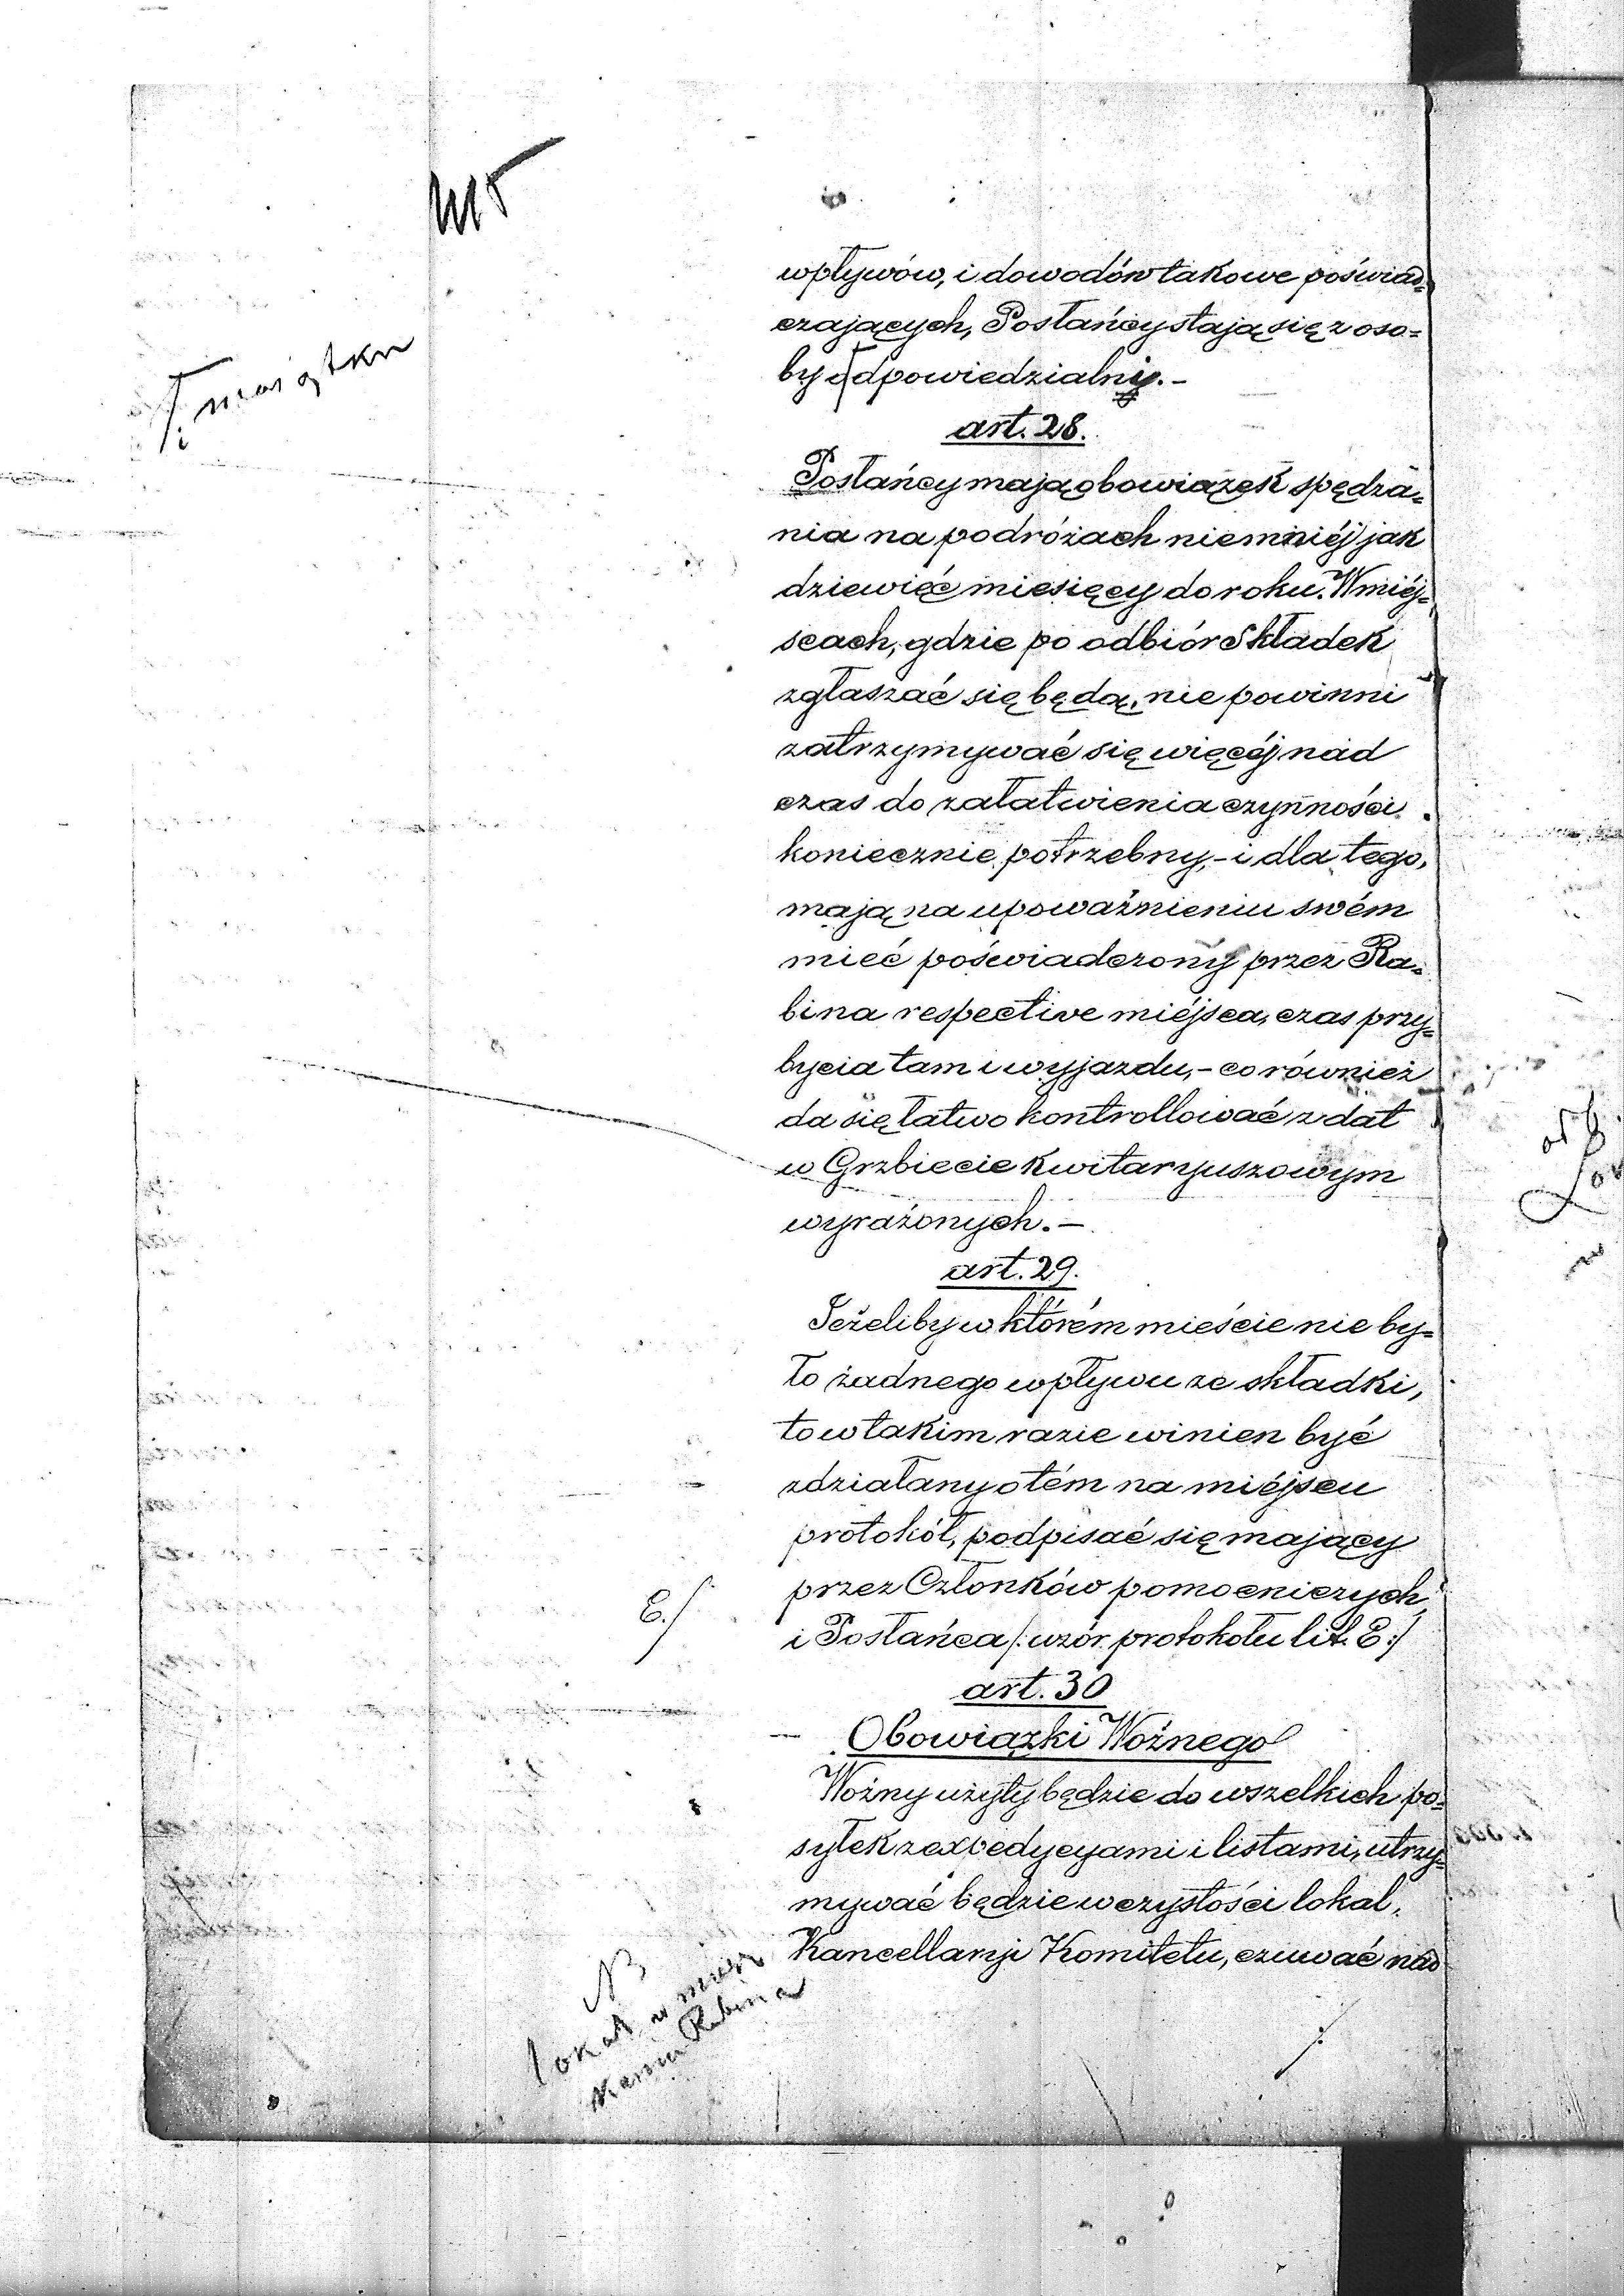 i majątku
wpływów, i dowodów takowe poświad=
czających, Posłańcy stają się z oso=
by odpowiedzialny.-
art. 28.
Posłańcy mają obowiązek spędza=
nia na podróżach niemniéj jak
dziewięć miesięcy do roku. W miéj=
scach, gdzie po odbiór Składek
zgłaszać się będą, nie powinni
zatrzymywać się więcéj nad
czas do załatwienia czynności
koniecznie potrzebny,- i dla tego,
mają na upoważnieniu swém
mieć poświadczony przez Ra=
bina respective miéjsca, czas przy=
bycia tam i wyjazdu,- co również
da się łatwo kontrollować z dat
w Grzbiecie Kwitaryuszowym
wyrażonych.-
art. 29.
Jeżeliby w którém mieście nie by=
ło żadnego wpływu ze składki,
to w takim razie winien być
zdziałany o tém na miéjscu
protokół, podpisać się mający
przez Członków pomocniczych
E./
i Posłańca /: wzór protokołu lit. E :/
art. 30
Obowiązki Woźnego
Woźny użyty będzie do wszelkich po=
syłek z expedycyami i listami, utrzy=
mywać będzie w czystości lokal,
Kancellaryi Komitetu, czuwać nad
NB
lokal w miesz
kaniu Rabina